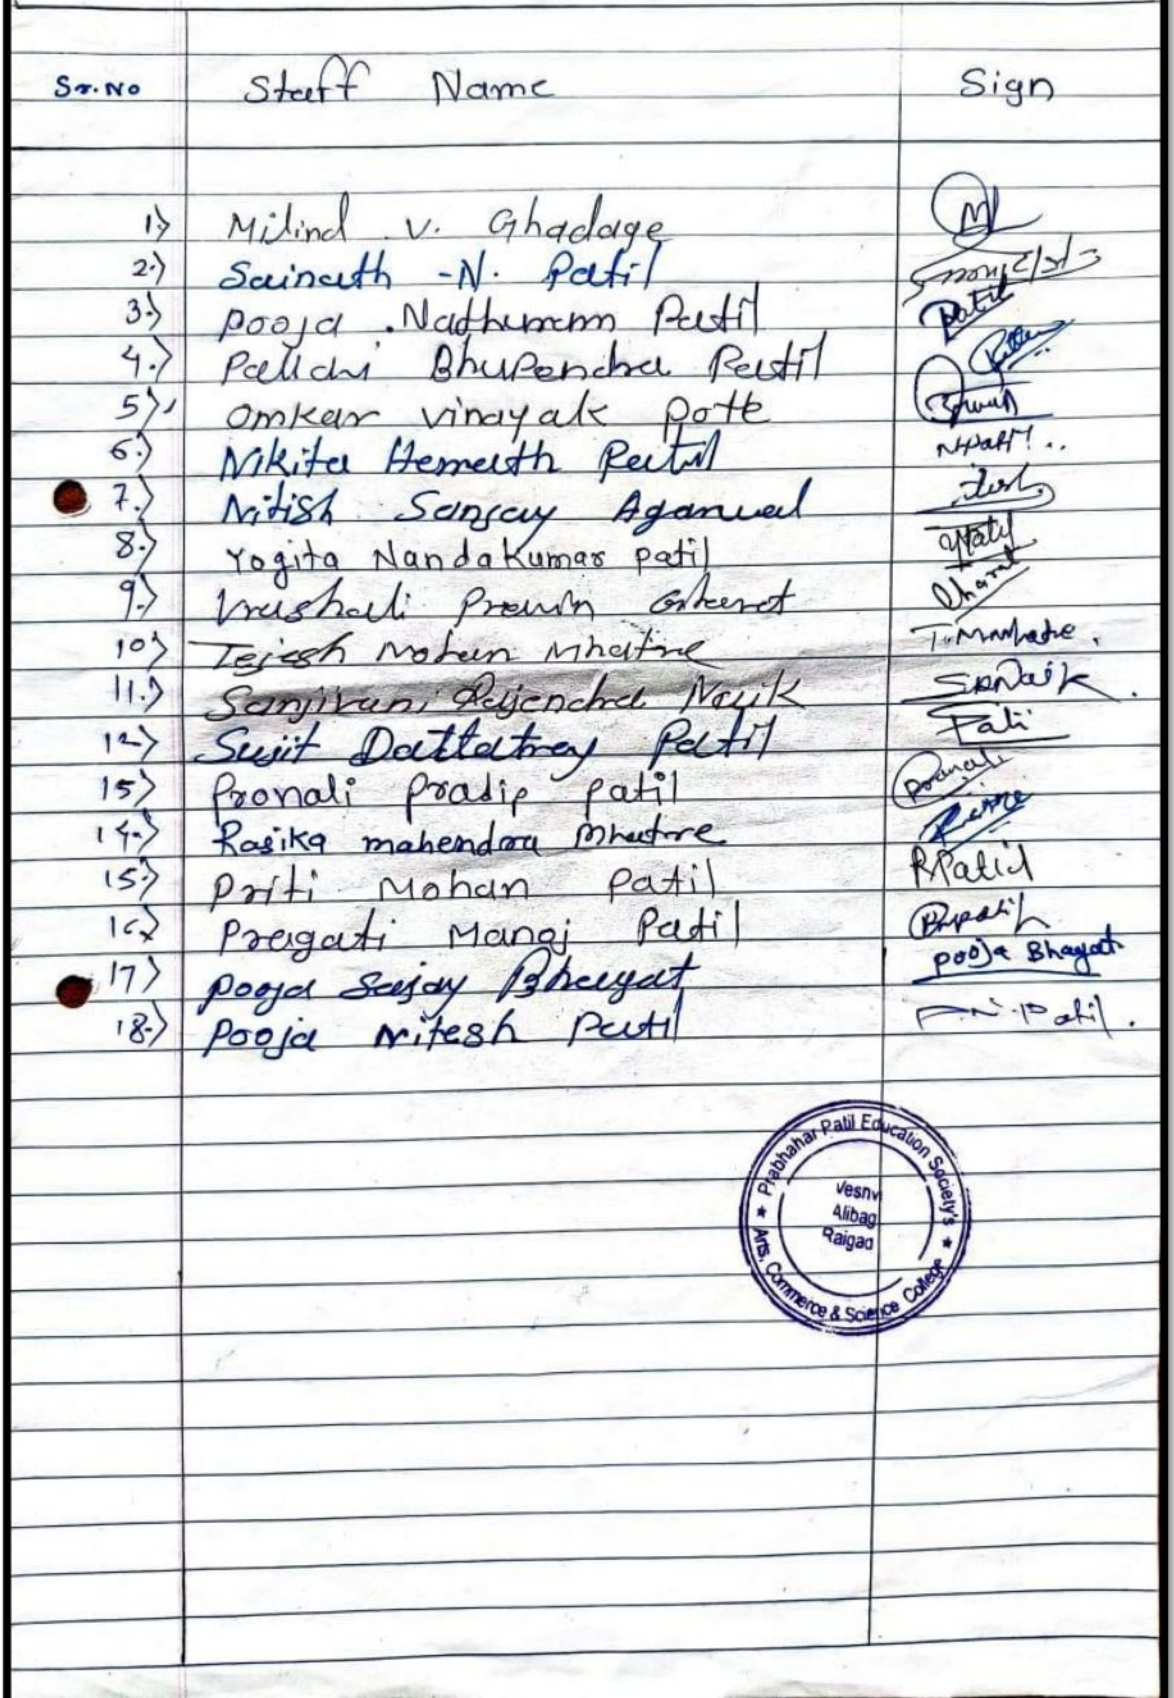 Sr.No Staff Name Sign
1) Milind V. Ghadage
2) Sainath -N. Patil
3) Pooja . Nathuram Patil Patil
4) Pallavi Bhupendra Patil
5) Omkar Vinayak Pote
6) Nikita Hemanth Patil
7) Nitish Sanjay Agarwal
8) Yogita Nandakumar Patil YPatil
9) Vrushali Pravin Gharat Gharat
10) Tejesh Mohan Mhatre T.M.Mhatre.
11) Sanjivani Rajendra Naik S.R.Naik.
12) Sujit Dattatray Patil Patil
15) Pronali Pradip Patil Pranali
14) Rasika mahendra Mhatre
15) Priti Mohan Patil PPatil
16) Pragati Manoj Patil
17) Pooja Sajay Bhagat Pooja Bhagat
18) Pooja Nitesh Patil P.N.Patil.
Prabhahar Patil Education Society's
Vesnvi
Alibag
Raigad
Arts, Commerce & Science College